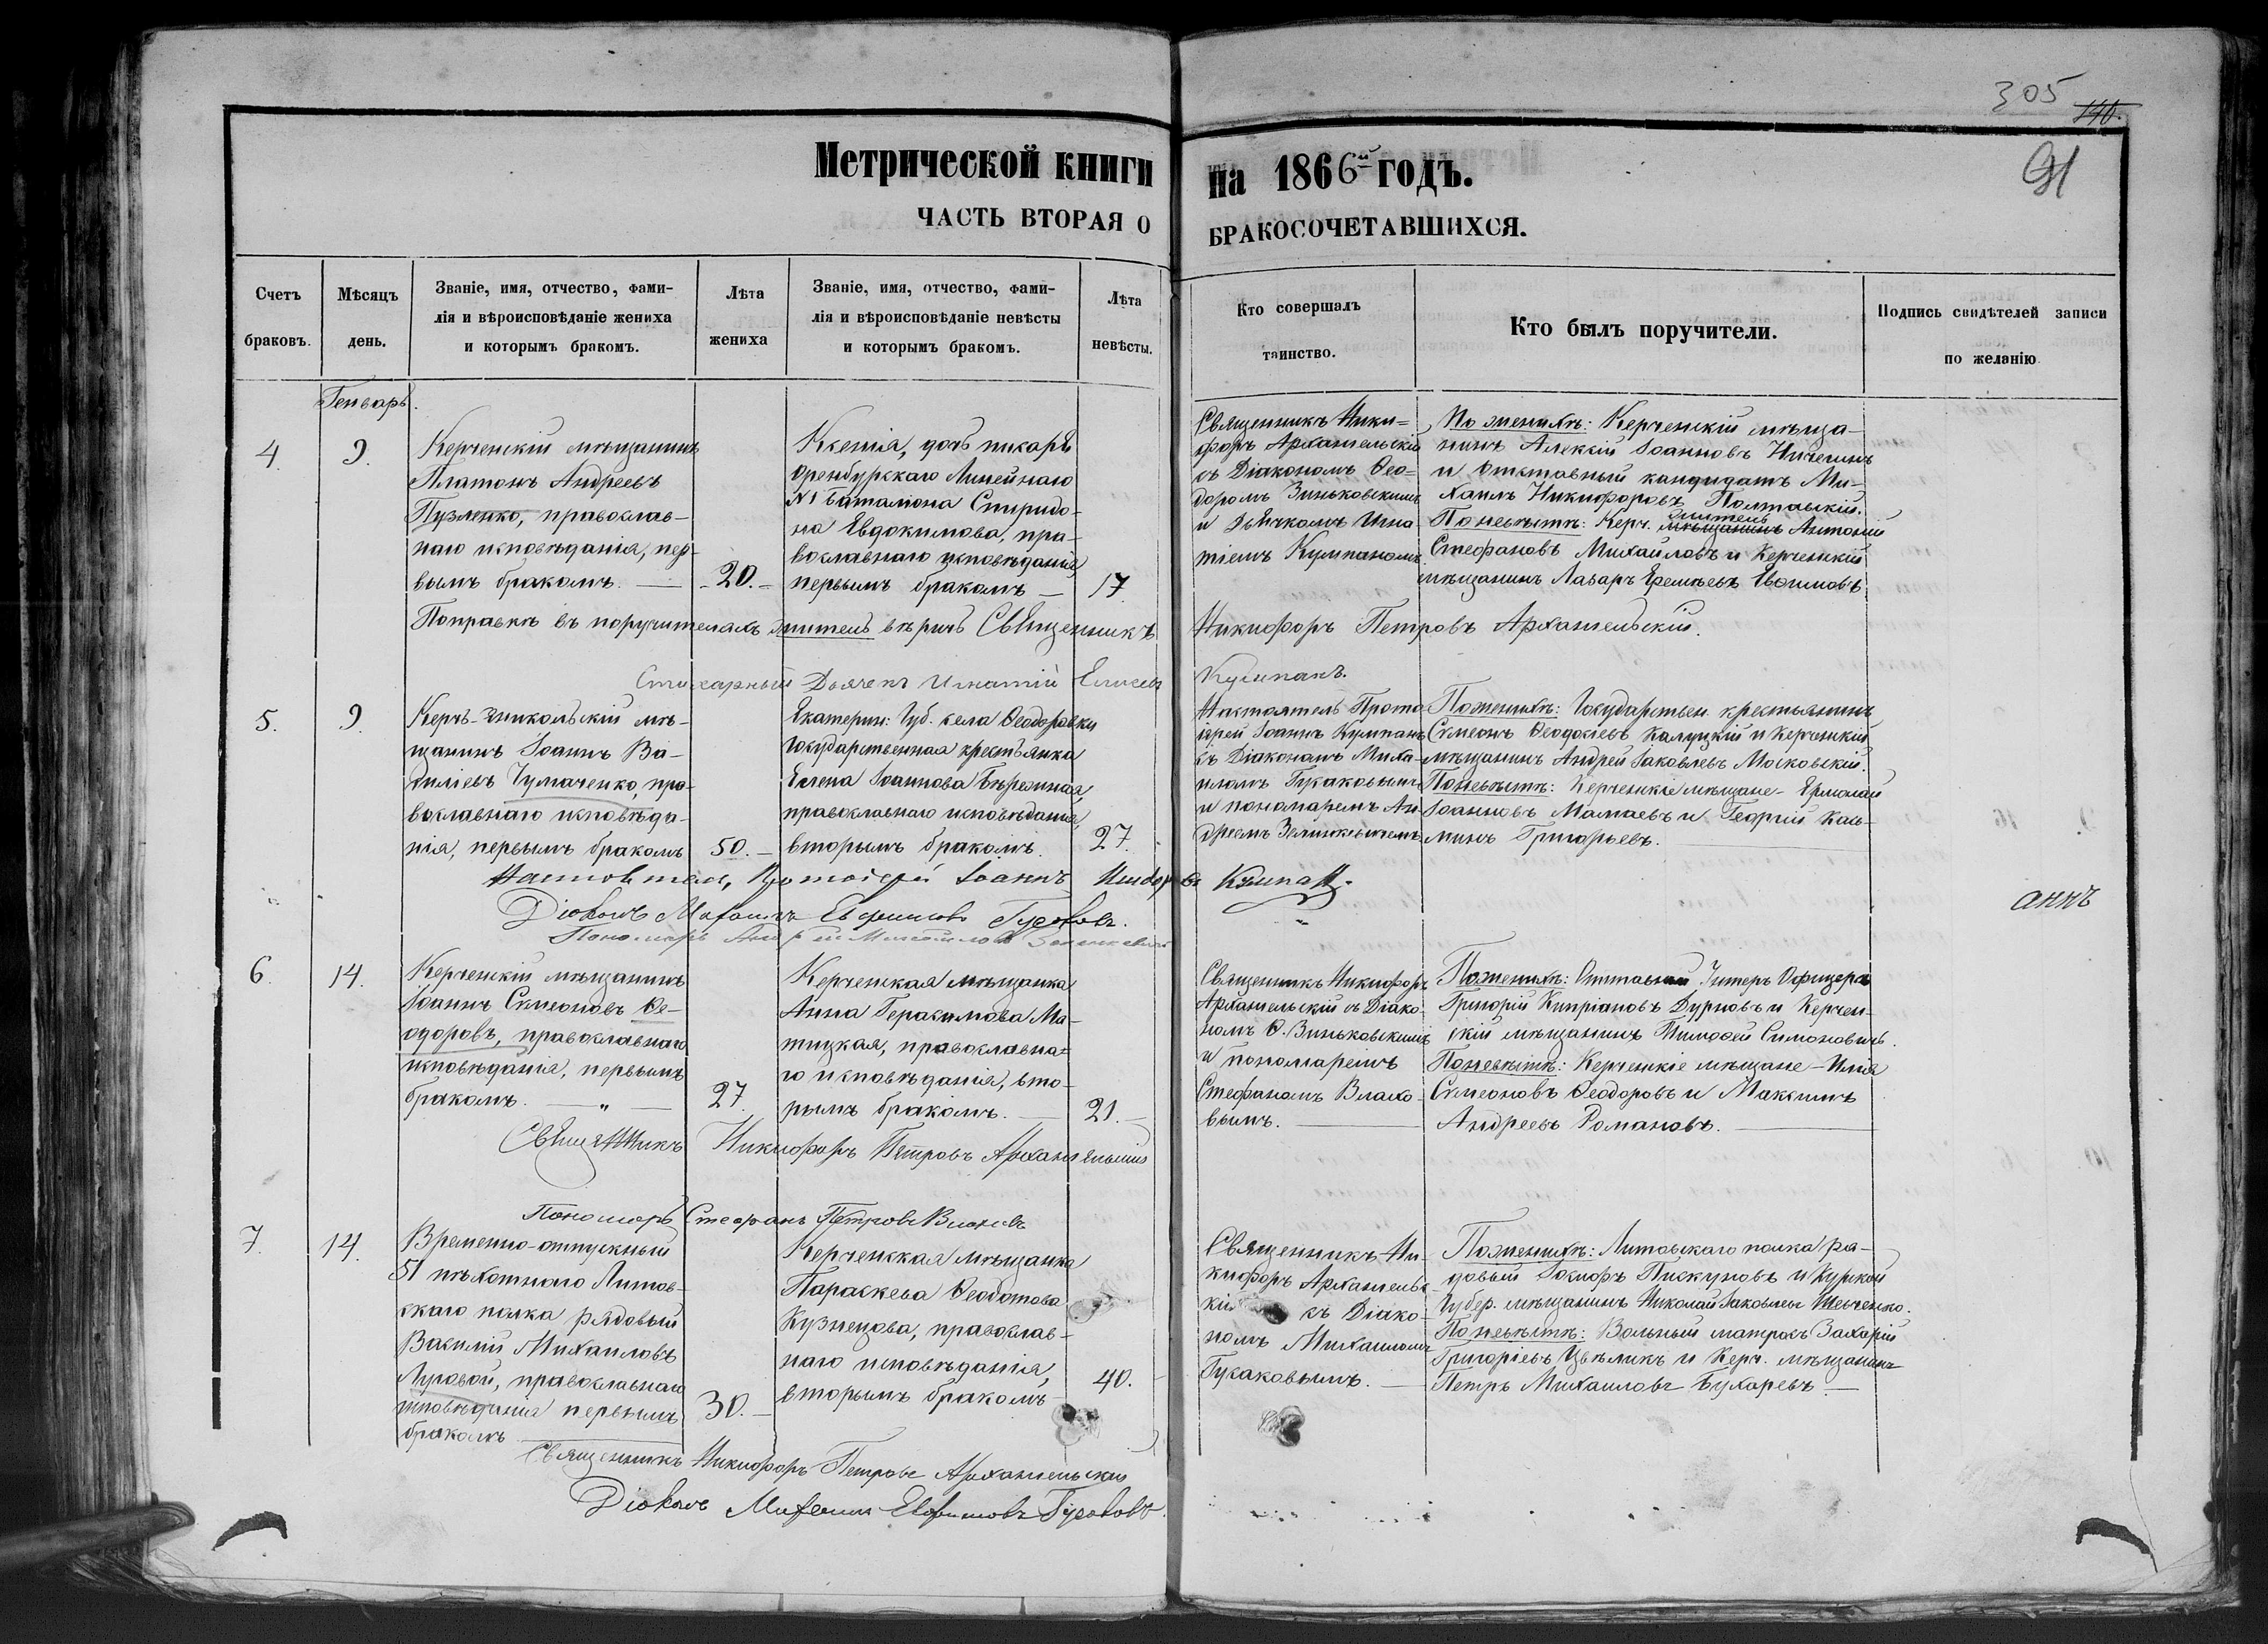 305
140.
91
Метрической книги на 1866й годъ.
ЧАСТЬ ВТОРАЯ О БРАКОСОЧЕТАВШИХСЯ.
Счетъ
браковъ.
Мѣсяцъ
день.
Званіе, имя, отчество, фами-
лія и вѣроисповѣданіе жениха
и которымъ бракомъ.
Лѣта
жениха
Званіе, имя, отчество, фами-
лія и вѣроисповѣданіе невѣсты
и которымъ бракомъ.
Лѣта
невѣсты.
Кто совершалъ
таинство.
Кто былъ поручители.
Подпись свидѣтелей записи
по желанію
Генварь.
4.
9.
Керченскій мѣщанинъ
Платонъ Андреевъ
Пузленко, православ-
наго исповѣданія, пер-
вымъ бракомъ. —
20. —
Ксенія, дочь писаря
Оренбурскаго Линейнаго
№1 баталіона Спиридо-
на Евдокимова, пра-
вославнаго исповѣданія,
первымъ бракомъ —
17
Священникъ Ники-
форъ Архангельскій
съ Діакономъ Ѳео-
доромъ Зиньковскимъ
и Дьячкомъ Игна
тіемъ Кумпаномъ
По женихѣ: Керченскій мѣща-
нинъ Алексій Іоанновъ Ничегинъ
и отставный кандидатъ Ми-
хаилъ Никифоровъ Полтавскій.
По невѣстѣ: Керч. мѣщанинъ житель Антоній
Стефановъ Михайловъ и Керченскій
мѣщанинъ Лазарь Еремѣевъ Евѳимовъ
Поправкѣ въ поручителяхъ житель вѣритъ Священникъ Никифоръ Петровъ Архангельскій.
Стихарный Дьячекъ Игнатій Елисеевъ Кумпанъ.
5.
9.
Керчь-Эникольскій мѣ-
щанинъ Іоаннъ Ва-
силіевъ Чумаченко, пра-
вославнаго исповѣда-
нія, первымъ бракомъ
50. —
Екатерин: Губ. села Ѳеодоровки
Государственная крестьянка
Елена Іоаннова Бѣрезиная,
православнаго исповѣданія,
вторымъ бракомъ.
27.
Настоятель Прото
іерей Іоаннъ Кумпанъ
съ Діакономъ Миха-
иломъ Гусаковымъ
и пономаремъ Ан-
дреемъ Зелинкевичемъ
По женихѣ: Государствен. крестьянинъ
Сумеонъ Ѳеодосіевъ Калуцкій и Керченскій
мѣщанинъ Андрей Іаковлевъ Московскій.
По невѣстѣ: Керченскіе мѣщане - Ермолай
Іоанновъ Мамаевъ и Георгій Каль-
минъ Григорьевъ.
Настоятель, Протоіерей Іоаннъ Исидоровъ Кумпанъ.
Діаконъ Михаилъ Евфимовъ Гусаковъ.
Пономарь Андрей Михайловъ Зелинкевичъ
аннъ
6.
14.
Керченскій мѣщанинъ
Іоаннъ Сумеоновъ Ѳе-
одоровъ, православнаго
исповѣданія, первымъ
бракомъ. — „ —
27.
Керченская мѣщанка
Анна Герасимова Ма-
тицкая, православна=
го исповѣданія, вто-
рымъ бракомъ. —
21. —
Священникъ Никифоръ
Архангельскій съ Діако-
номъ Ѳ. Зиньковскимъ
и пономаремъ
Стефаномъ Власо-
вымъ. —
По женихѣ: Отставный Унтеръ Офицеръ
Григорій Кипріановъ Дурновъ и Керчен-
скій мѣщанинъ Тимоѳей Симоновичъ.
По невѣстѣ: Керченскіе мѣщане - Илія
Сумеоновъ Ѳеодоровъ и Максимъ
Андреевъ Романовъ. —
Священникъ Никифоръ Петровъ Архангельскій
Пономарь Стефанъ Петровъ Власовъ
7.
14.
Временно-отпускный
51 пѣхотнаго Литов-
скаго полка рядовый
Василій Михаиловъ
Луговой, православнаго
исповѣданія первымъ
бракомъ
30. —
Керченская мѣщанка
Параскева Ѳеодотова
Кузнецова, православ-
наго исповѣданія,
вторымъ бракомъ
40.
Священникъ Ни-
кифоръ Архангель-
скій съ Діако-
номъ Михаиломъ
Гусаковымъ. —
По женихѣ: Литовскаго полка ря-
довый Іосифъ Пискуновъ и Курской
Губер. мѣщанинъ Николай Іаковлевъ Шевченко.
По невѣстѣ: Вольный матросъ Захарій
Григоріевъ Цвѣликъ и Керч. мѣщанинъ
Петръ Михаиловъ Бухаревъ. —
Священникъ Никифоръ Петровъ Архангельскій
Діаконъ Михаилъ Евфимовъ Гусаковъ.